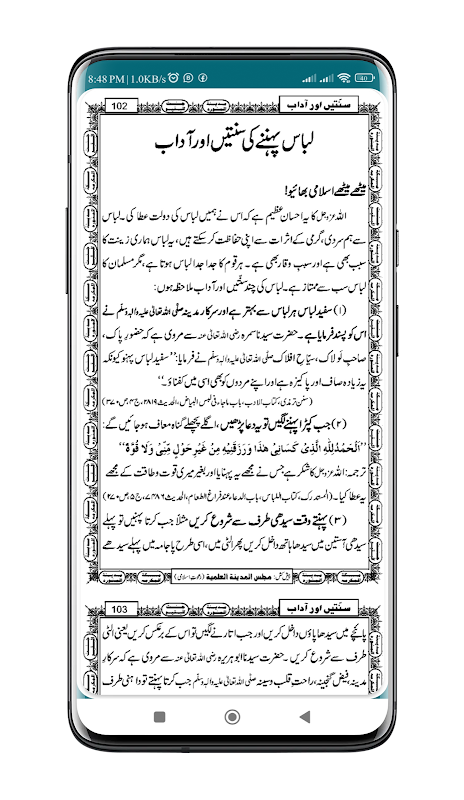 8:48 PM | 1.0KB/s
102
سنتیں اور آداب
لباس پہننے کی سنتیں اور آداب
میٹھے میٹھے اسلامی بھائیو!
اللہ عزوجل کا یہ احسانِ عظیم ہے کہ اس نے ہمیں لباس کی دولت عطا کی۔ لباس
سے ہم سردی، گرمی کے اثرات سے اپنی حفاظت کرسکتے ہیں، یہ لباس ہماری زینت کا
سبب بھی ہے اور سببِ وقار بھی ہے۔ ہر قوم کا جدا جدا لباس ہوتا ہے، مگر مسلمان کا
لباس سب سے ممتاز ہے۔ لباس کی چند سنتیں اور آداب ملاحظہ ہوں:
(۱) سفید لباس ہر لباس سے بہتر ہے اور سرکار مدینہ صلی اللہ تعالیٰ علیہ والہٖ وسلم نے
اس کو پسند فرمایا ہے۔ حضرت سیدنا سمرہ رضی اللہ تعالیٰ عنہ سے مروی ہے کہ حضور پاک،
صاحبِ لولاک، سیّاحِ افلاک صلی اللہ تعالیٰ علیہ والہٖ وسلم نے فرمایا: ”سفید لباس پہنو کیونکہ
یہ زیادہ صاف اور پاکیزہ ہے اور اپنے مردوں کو بھی اسی میں کفناؤ۔“
(سنن ترمذی، کتاب الادب، باب ماجاء فی لبس البیاض، الحدیث ۲۸۱۹، ج۴، ص۳۷۰)
(۲) جب کپڑا پہننے لگیں تو یہ دعا پڑھیں، اگلے پچھلے گناہ معاف ہوجائیں گے:
”اَلْحَمْدُ لِلّٰهِ الَّذِیْ كَسَانِیْ هٰذَا وَرَزَقَنِیْهِ مِنْ غَیْرِ حَوْلٍ مِّنِّیْ وَلَا قُوَّةَ“
ترجمہ: اللہ عزوجل کا شکر ہے جس نے مجھے یہ پہنایا اور بغیر میری قوت و طاقت کے مجھے
یہ عطا کیا۔ (المستدرک، کتاب اللباس، باب الدعاء عند فراغ الطعام، الحدیث ۷۴۸۶، ج۵، ص۲۷۰)
(۳) پہنتے وقت سیدھی طرف سے شروع کریں مثلاً جب کرتا پہنیں تو پہلے
سیدھی آستین میں سیدھا ہاتھ داخل کریں پھر الٹی میں، اسی طرح پاجامہ میں پہلے سیدھے
پیش کش: مجلس المدینة العلمیة (دعوتِ اسلامی)
103
سنتیں اور آداب
پائنچے میں سیدھا پاؤں داخل کریں اور جب اتارنے لگیں تو اس کے برعکس کریں یعنی الٹی
طرف سے شروع کریں۔ حضرت سیدنا ابو ہریرہ رضی اللہ تعالیٰ عنہ سے مروی ہے کہ سرکارِ
مدینہ، فیض گنجینہ، راحتِ قلب و سینہ صلی اللہ تعالیٰ علیہ والہٖ وسلم جب کرتا پہنتے تو داہنی طرف